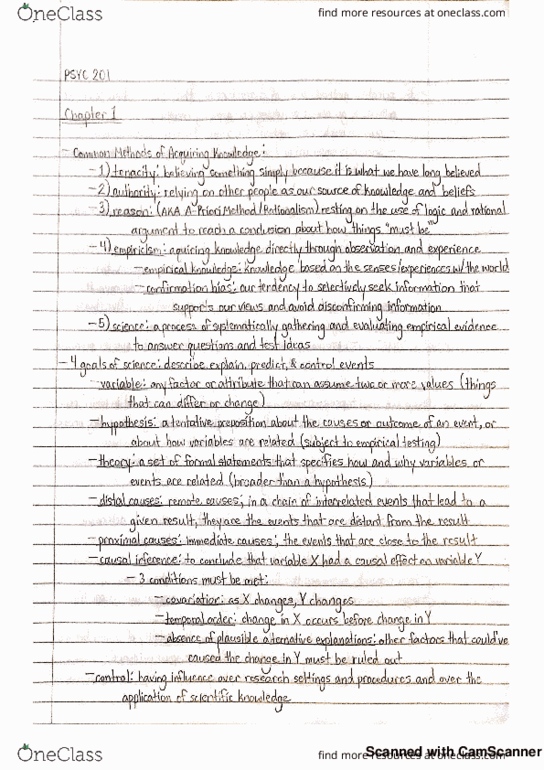 OneClass
find more resources at oneclass.com
PSYC 201
Chapter 1
- Common Methods of Acquiring Knowledge:
- 1) tenacity: believing something simply because it is what we have long believed
- 2) authority: relying on other people as our source of knowledge and beliefs
- 3) reason: (AKA A-Priori Method/Rationalism) resting on the use of logic and rational
argument to reach a conclusion about how things "must be"
- 4) empiricism: aquiring knowledge directly through observation and experience
- empirical knowledge: knowledge based on the senses/experiences w/ the world
- confirmation bias: our tendency to selectively seek information that
supports our views and avoid disconfirming information
- 5) science: a process of systematically gathering and evaluating empirical evidence
to answer questions and test ideas
- 4 goals of science: describe explain, predict, & control events
- variable: any factor or attribute that can assume two or more values (things
that can differ or change)
- hypothesis: a tentative preposition about the causes or outcome of an event, or
about how variables are related (subject to empirical testing)
- theory: a set of formal statements that specifies how and why variables or
events are related (broader than a hypothesis)
- distal causes: remote causes; in a chain of interrelated events that lead to a
given result, they are the events that are distant from the result
- proximal causes: immediate causes; the events that are close to the result
- causal inference: to conclude that variable X had a causal effect on variable Y
- 3 conditions must be met:
- covariation: as X changes, Y changes
- temporal order: change in X occurs before change in Y
- absence of plausible alternative explanations: other factors that could've
caused the change in Y must be ruled out
- control: having influence over research settings and procedures and over the
application of scientific knowledge
OneClass
find more resources at oneclass.com
Scanned with CamScanner